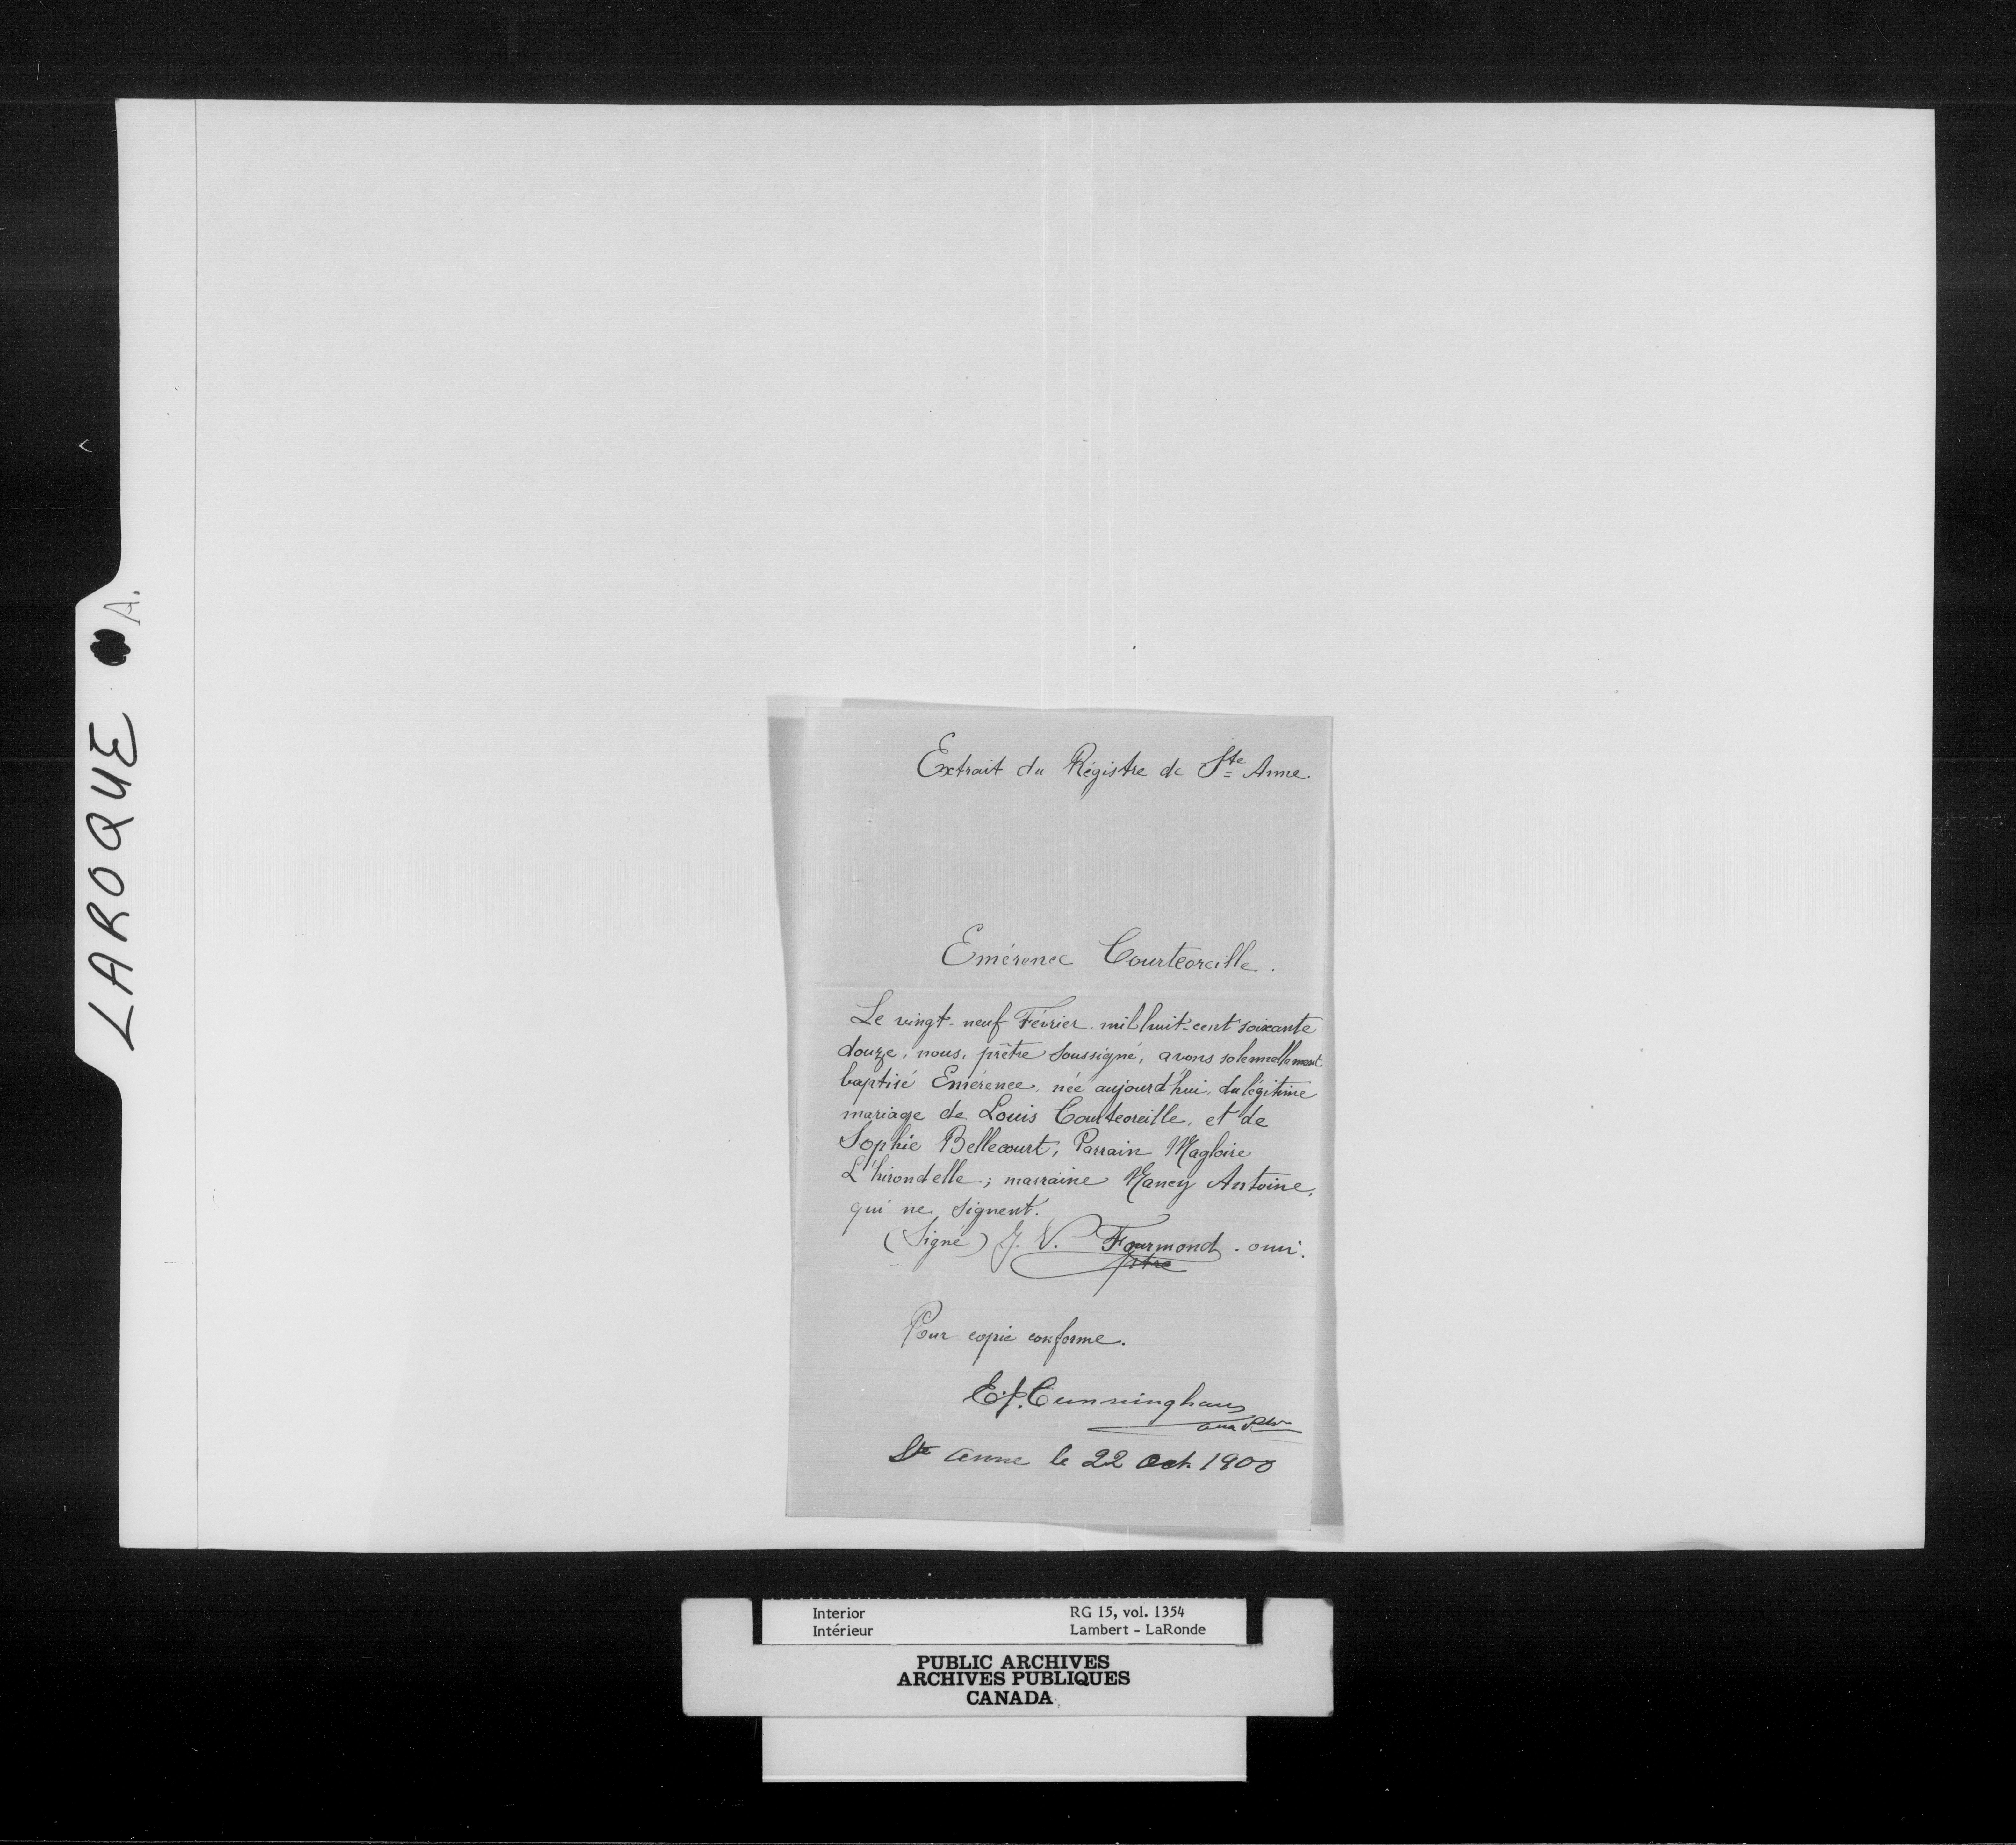 LAROQUE A.
Extrait du Régistre de Ste Anne.
Emérence Courteoreille.
Le vingt-neuf Février mil huit-cent soixante
douze, nous, prêtre soussigné, avons solennellement
baptisé Emérence, née aujourd'hui, du légitime
mariage de Louis Courteoreille, et de
Sophie Bellecourt, Parrain Magloire
L'hirondelle; marraine Nancy Antoine,
qui ne signent.
(Signé) J. V. Fourmond. omi.
ptre
Pour copie conforme.
E. J. Cunningham
Ste Anne le 22 Oct 1900
Interior RG 15, vol. 1354
Intérieur Lambert - LaRonde
PUBLIC ARCHIVES
ARCHIVES PUBLIQUES
CANADA